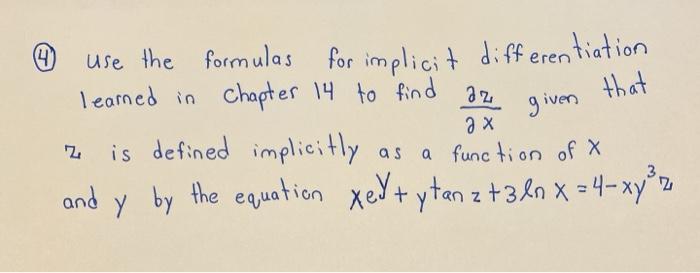 ④ use the formulas for implicit differentiation
learned in Chapter 14 to find ∂z/∂x given that
z is defined implicitly as a function of x
and y by the equation xe^y + y tan z + 3 ln x = 4 - xy^3 z